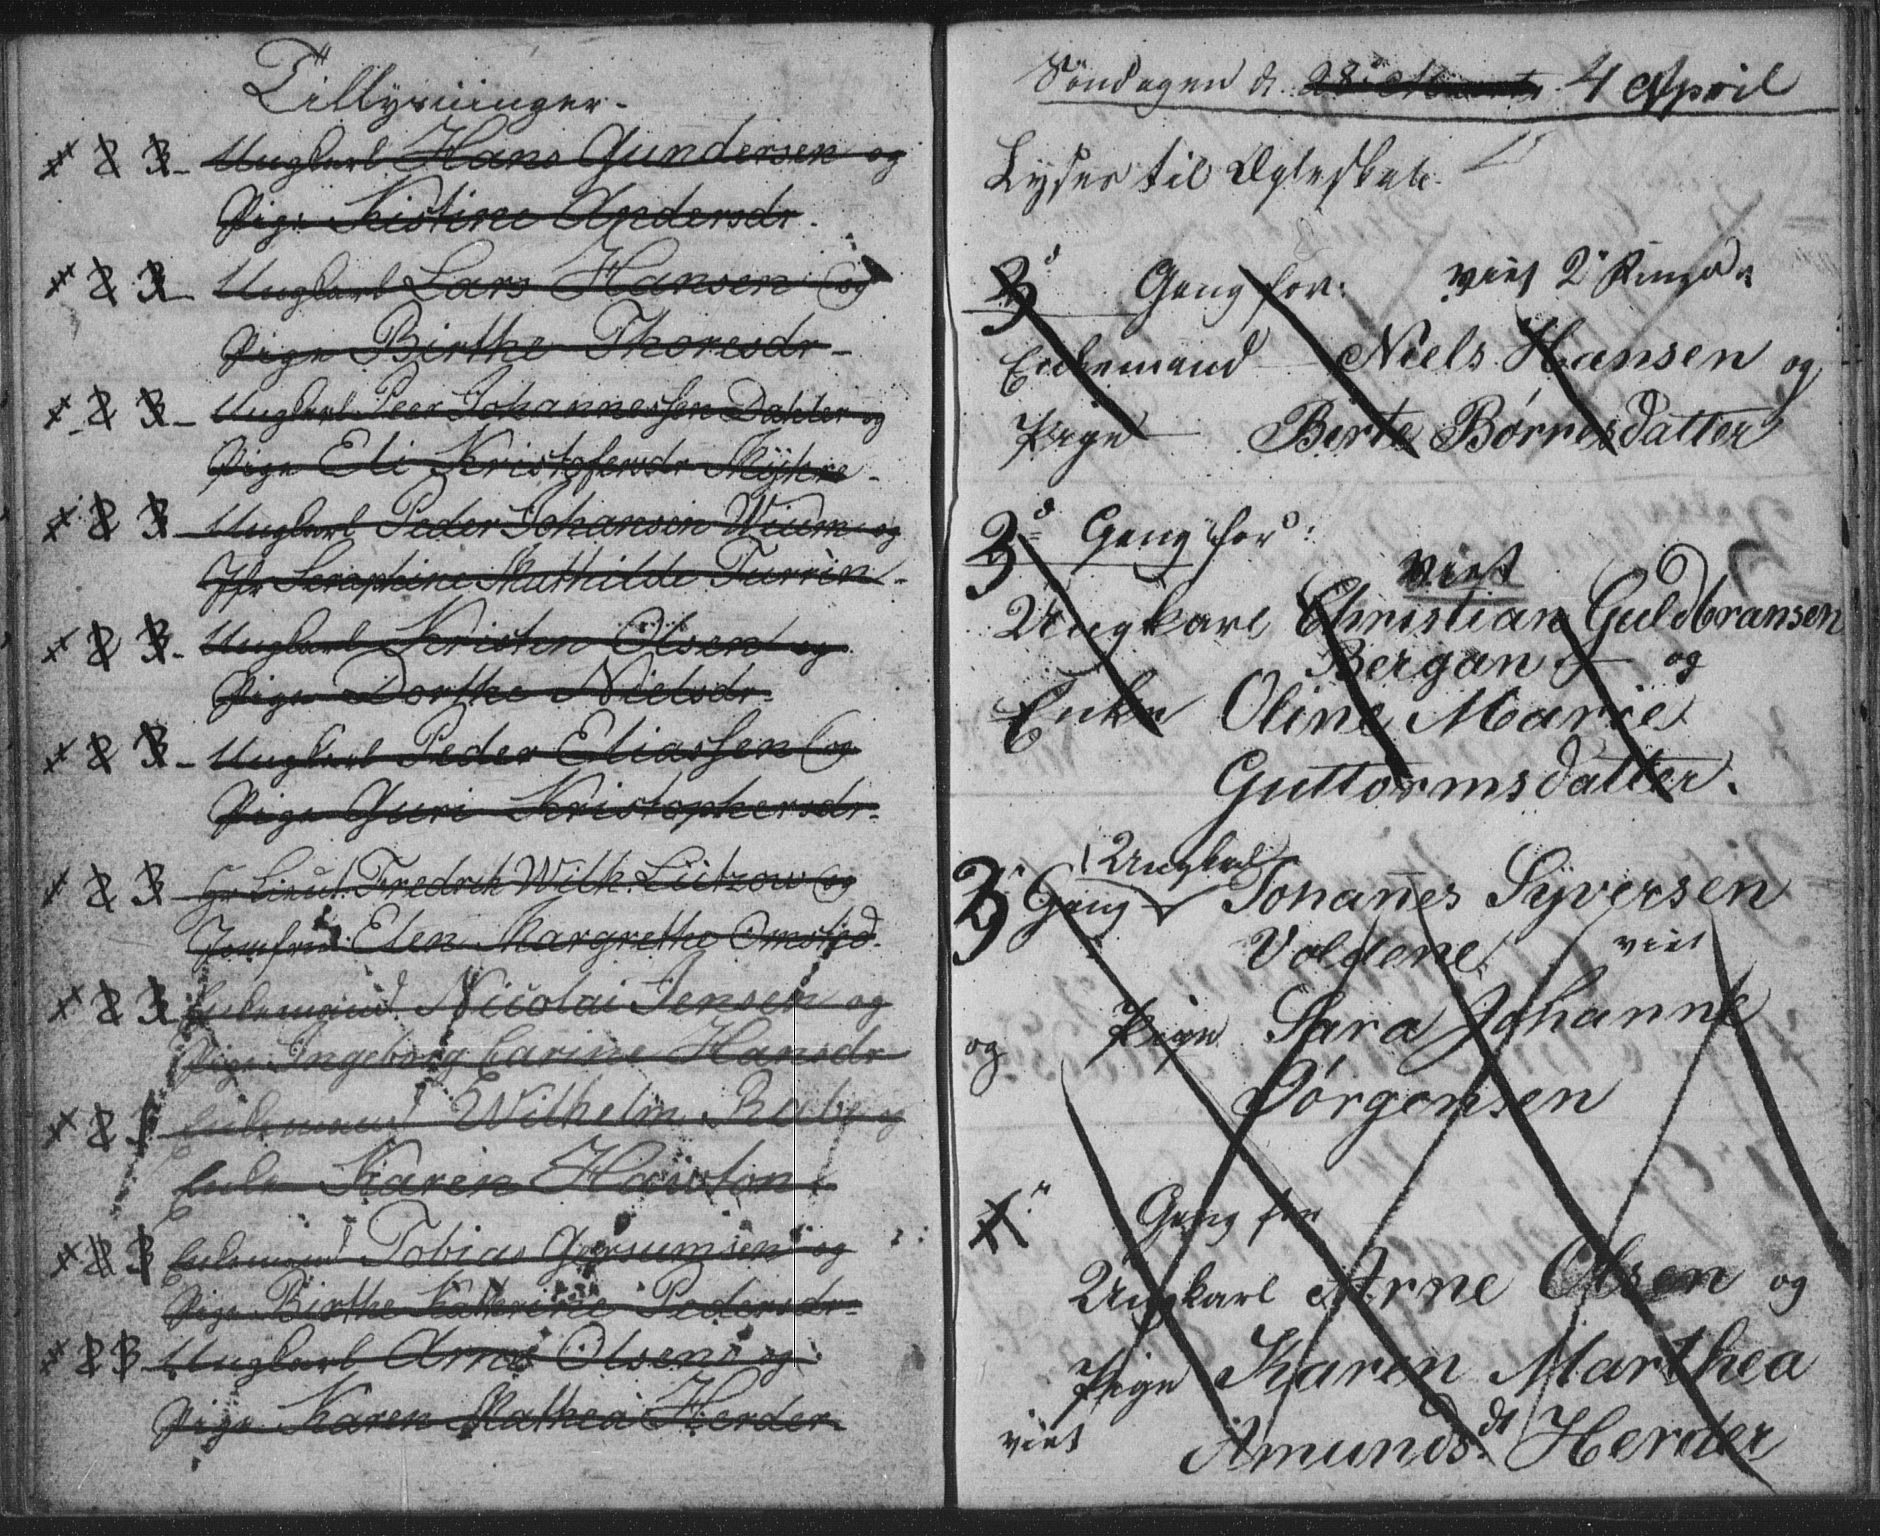 Tillysninger.
Ungkarl Hans Gundersen og
Pige Kistine Andersdr.
Ungkarl Lars Hansen og
Pige Birthe Thoresdr
Ungkarl Peer Johannessen Dahler og
Pige Eli Kristofersdr
Ungkarl Peder Johansen Wium og
Jfr Seraphine Mathilde Turrin
Ungkarl Kristen Olsen og
Pige Dorthe Nielsdr.
Ungkarl Peder Eliassen og
Pige Guri Kristophersdr.
Hr Lieut. Fredrik Wilh. Lützow og
Jomfrue Elen Margrethe Omsted.
Enkemand Nicolai Jensen og
Pige Ingeborg Carine Hansdr
Enkemand Wilhelm og
Enke Karen
Enkemand Tobias og
Pige Birthe Katherine Pedersdr.
Ungkarl Arne Olsen og
Pige Karen Mathea Herder
Søndagen d. 28 Marts 4 April
Lyses til Ægteskab.
3d Gang for: viet 2
Enkemand Niels Hansen og
Pige Birte Børresdatter
3d Gang for:
viet
Ungkarl Christian Guldbransen
Bergan og
Enke Oline Marie
Guttormsdatter.
Ungkarl
3 Gang Johanes Syversen
Voldene viet
og Pige Sara Johanne
Jørgensen
Gang for
Ungkarl Arne Olsen og
Pige Karen Marthea
viet Amundsdt Herder